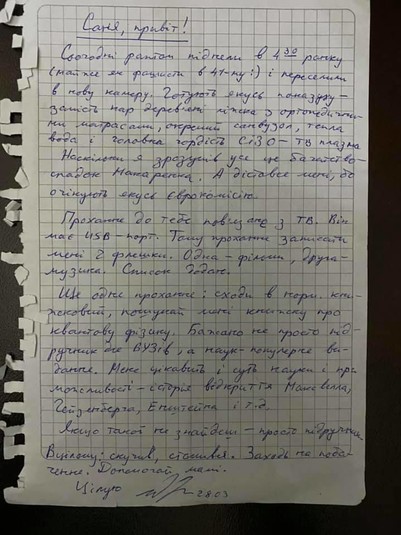 Саня, привіт!
Сьогодні раптом підняли в 4 30 ранку
(майже як фашисти в 41-му!) і переселили
в нову камеру. Готують якусь показуху -
замість нар дерев'яні ліжка з ортопедични-
ми матрасами, окремий санвузол, тепла
вода і головна гордість СІЗО - ТВ плазма
Наскільки я зрозумів усе це багатство-
спадок Макаренка. А дістався мені, бо
очікують якусь Єврокомісію.
Прохання до тебе пов'язане з ТВ. Він
має USB-порт. Тому прохання записати
мені 2 флешки. Одна - фільми, друга -
музика. Список додаю.
Ще одне прохання: сходи в норм. кни-
жковий, пошукай мені книжку про
квантову фізику. Бажано не просто під-
ручник для ВУЗів, а наук-популярне ви-
дання. Мене цікавить і суть науки і при
можливості - історія відкриття Максвелла,
Гейзенберга, Енштейна і т.д.
Якщо такої не знайдеш - просто підручник.
Вцілому: скучив, стомився. Заходь на поба-
чення. Допомогай мамі.
Цілую 28.03